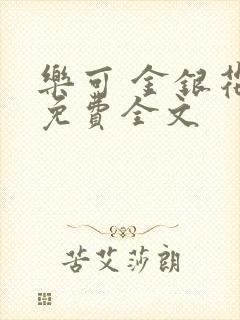 樂可 金銀花
免費全文
苦艾莎朗